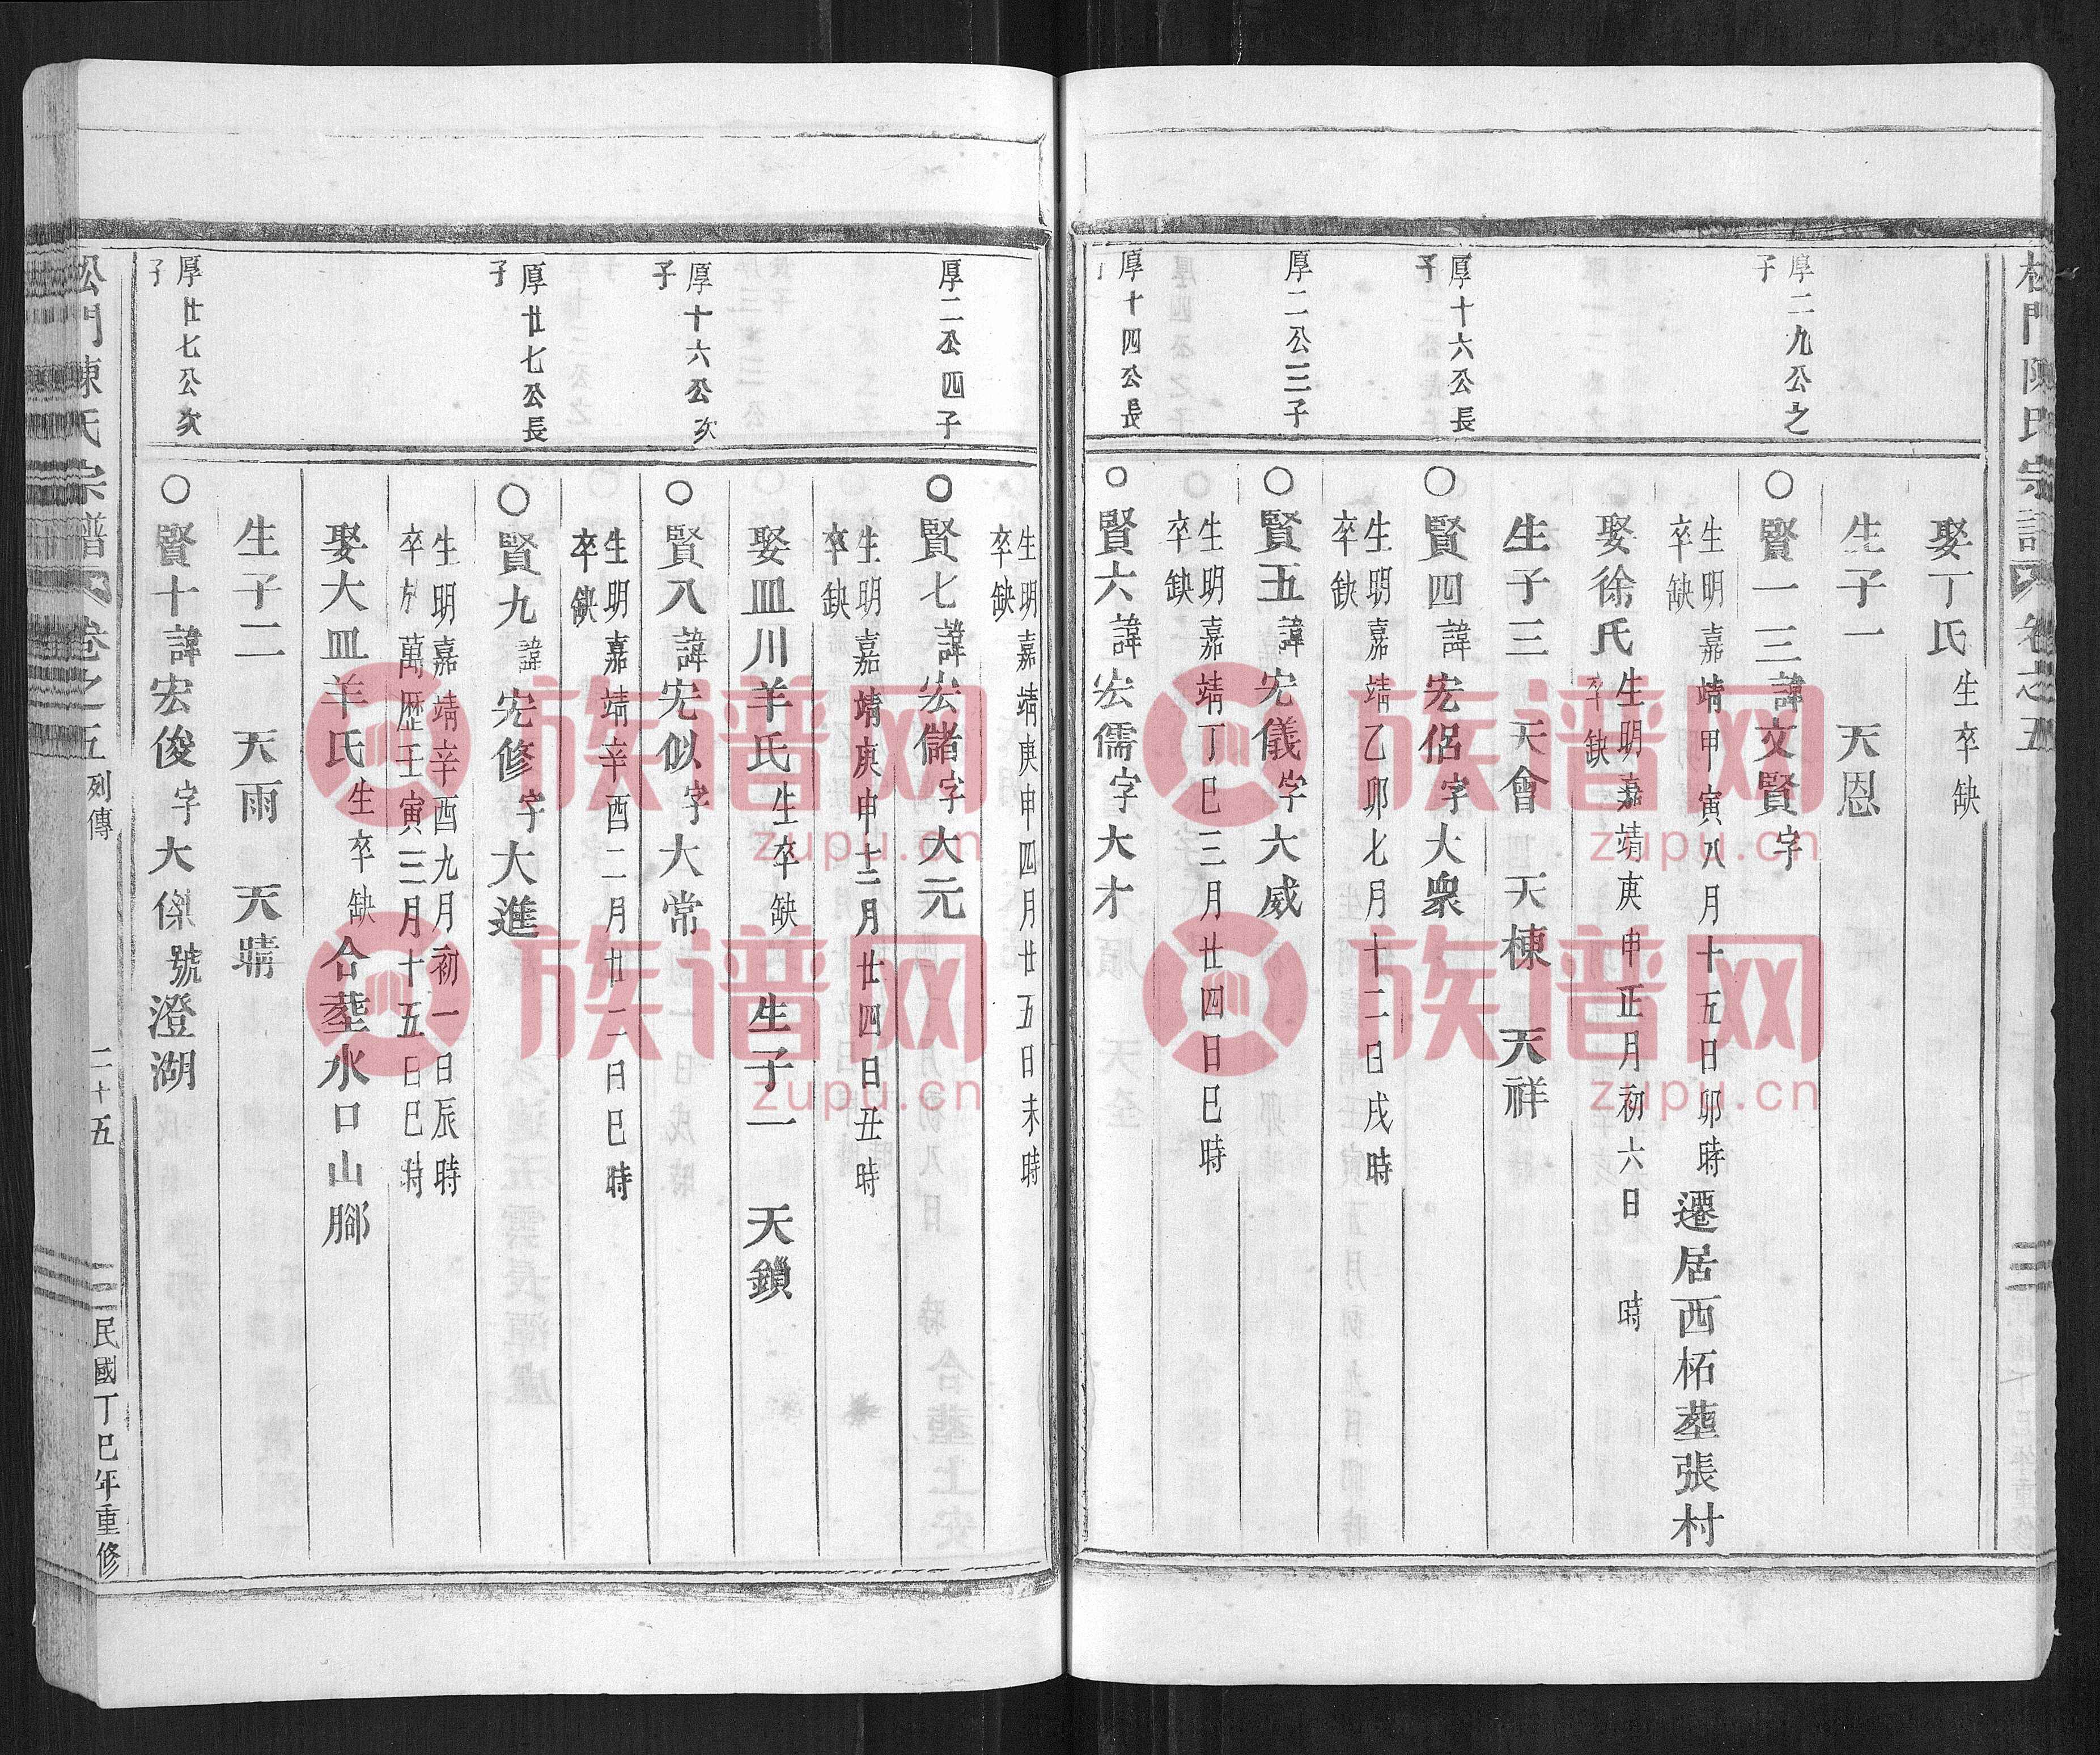 娶丁氏生卒缺
生子一　天恩
厚二九公之子
○賢一三諱文賢字
生明嘉靖甲寅八月十五日卯時
卒缺
遷居西柘塟張村
娶徐氏生明嘉靖庚申正月初六日　時
卒缺
生子三　天會　天棟　天祥
厚十六公長子
○賢四諱宪侶字大衆
生明嘉靖乙卯七月十二日戌時
卒缺
厚二公三子
○賢五諱宪儀字大威
生明嘉靖丁巳三月廿四日巳時
卒缺
厚十四公長子
○賢六諱宏儒字大才
生明嘉靖庚申四月廿五日未時
卒缺
厚二公四子
○賢七諱宏儲字大元
生明嘉靖庚申十二月廿四日丑時
卒缺
娶皿川羊氏生卒缺　生子一　天鎖
厚十六公次子
○賢八諱宪似字大常
生明嘉靖辛酉二月廿二日巳時
卒缺
厚廿七公長子
○賢九諱宪修字大進
生明嘉靖辛酉九月初一日辰時
卒于萬歷壬寅三月十五日巳時
娶大皿羊氏生卒缺合塟水口山腳
生子二　天雨　天晴
厚廿七公次子
○賢十諱宏俊字大傑號澄湖
松門陳氏宗譜　卷之五　列傳　二十五　民國丁巳年重修
松門陳氏宗譜　卷之五
族谱网
zupu.cn
族谱网
zupu.cn
族谱网
zupu.cn
族谱网
zupu.cn